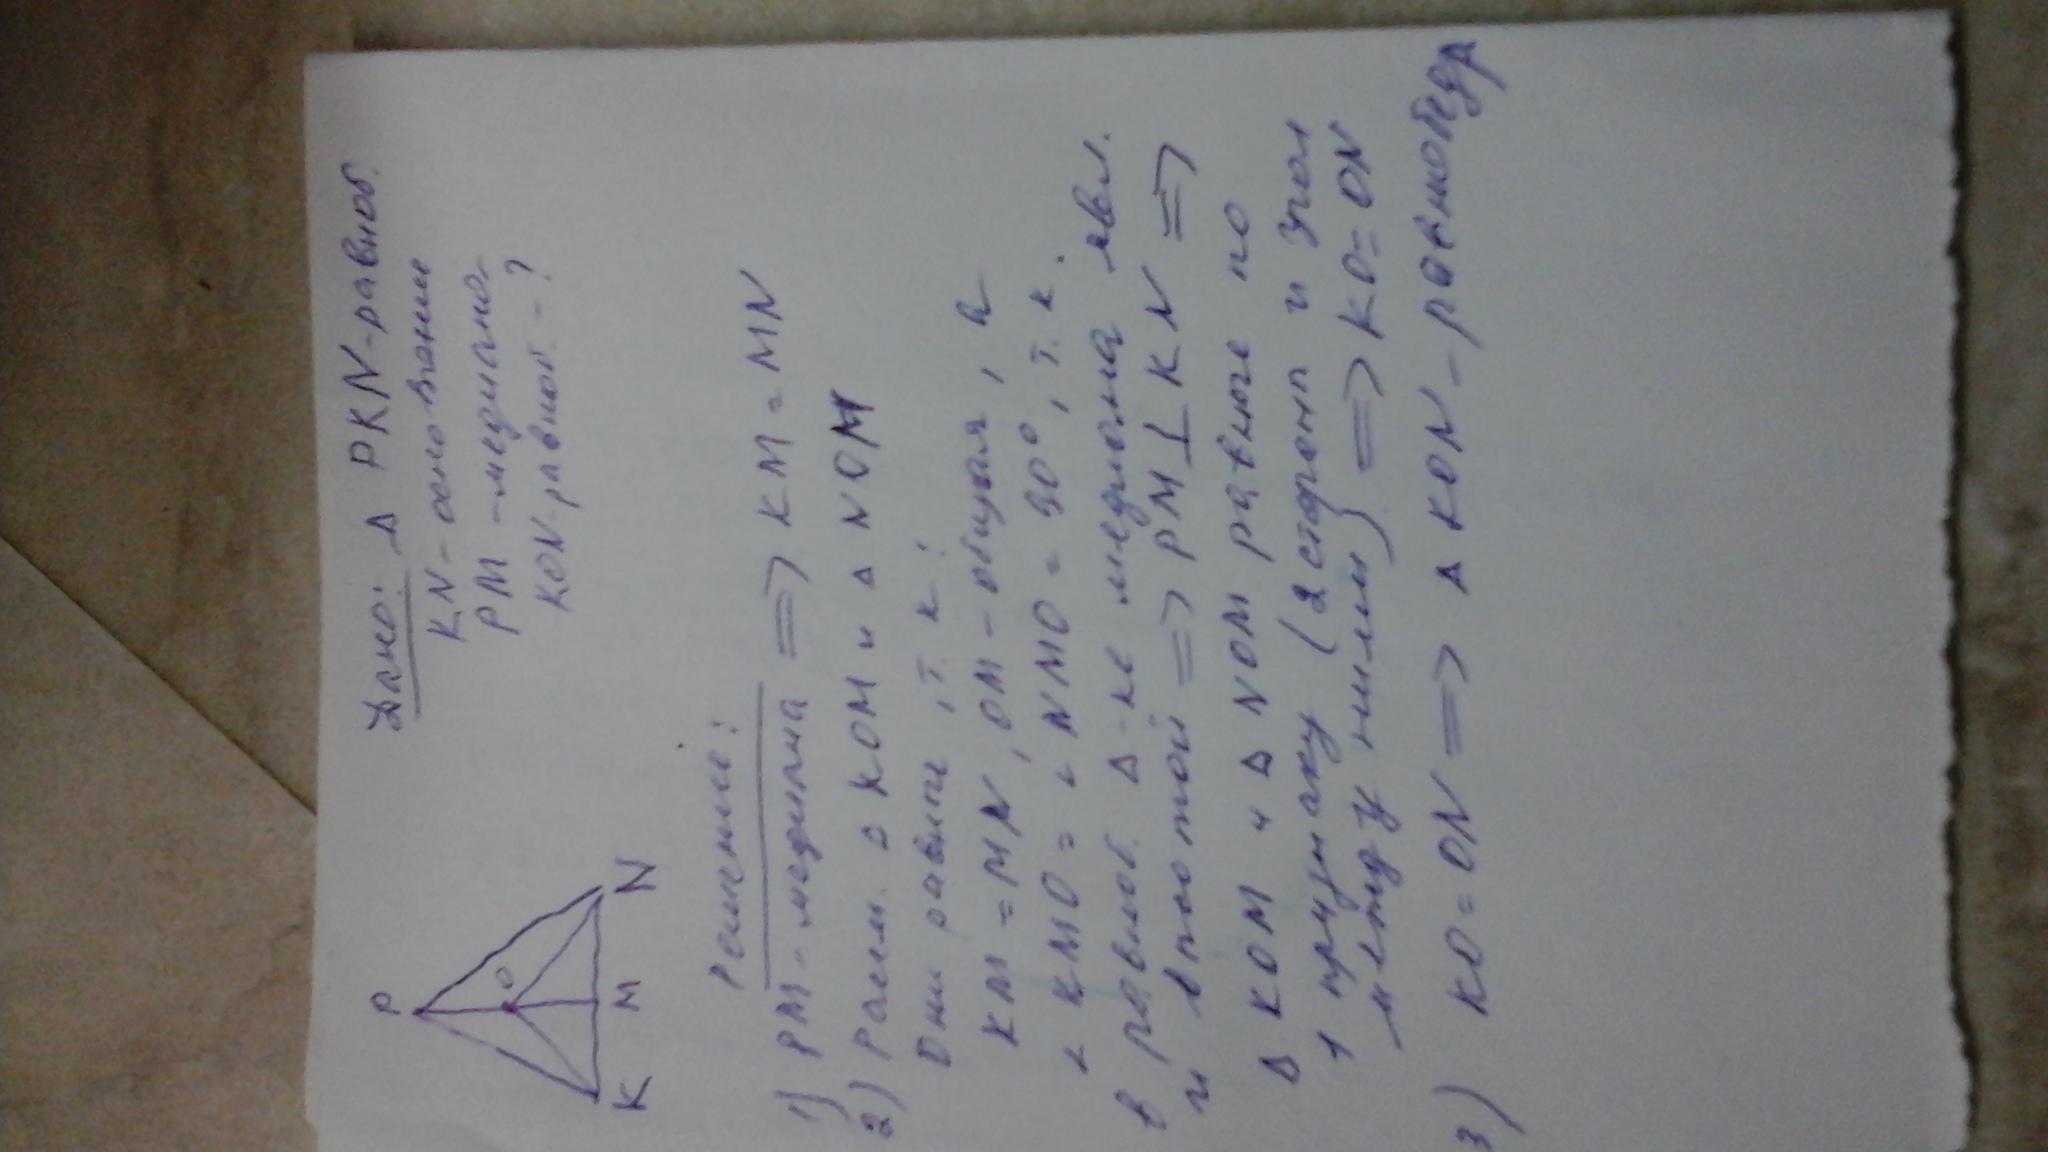 Дано: Δ PKN-равноб.
KN - основание
PM - медиана.
KON-равноб. - ?
P
O
K M N
Решение:
1) PM - медиана => KM = MN
2) Рассм. Δ KOM и Δ NOM
Они равны, т. к:
KM = MN, OM - общая, а
∠ KMO = ∠ NMO = 90°, т. к.
в равноб. Δ-ке медиана явл.
и высотой => PM ⊥ KN =>
Δ KOM и Δ NOM равные по
1 признаку (2 сторон и угол
между ними) => KO = ON
3) KO = ON => Δ KON - равнобедр